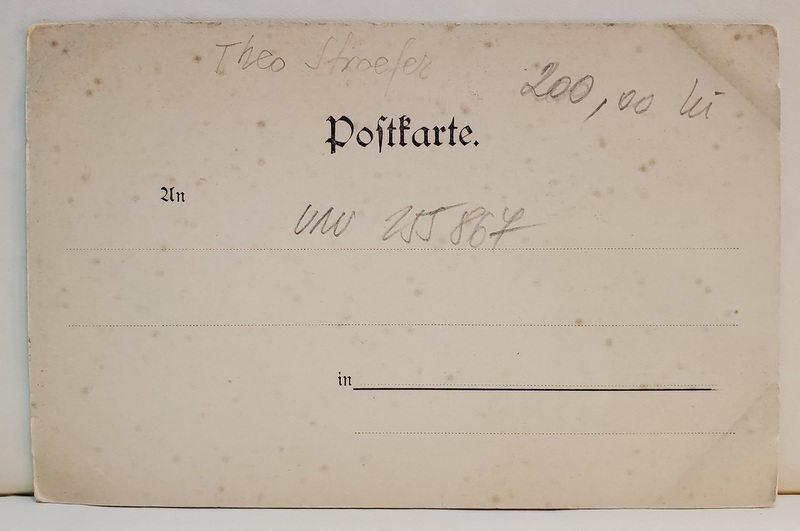 Theo Stroefer
200,00 lei
Postkarte.
An
in